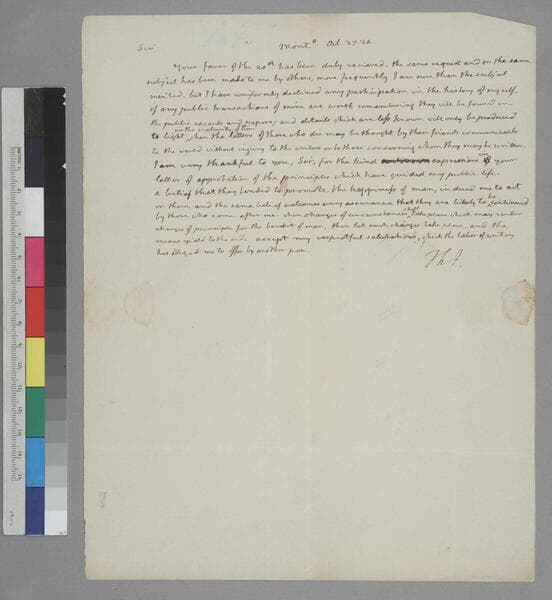 Sir Mont⁰ Oct. 27. 22.
Your favor of the 20th has been duly recieved. the same request and on the same
subject has been made to me by others, more frequently I am sure than the subject
merited, but I have uniformly declined any participation in the history of myself.
if any public transactions of mine are worth remembering they will be found in
the public records and papers; and details which are less known will only be produced
in the maturity of time
to light, when the letters of those who die may be thought by their friends communicable
to the world without injury to the writers or to those concerning whom they may be written.
I am very thankful to you, Sir, for the kind expressions in your
letter of approbation of the principles which have guided my public life.
a belief that they tended to promote the happiness of man, induced me to act
on them, and the same belief welcomes every assurance that they are likely to be continued
by those who come after me. when changes of circumstances shall take place which may render
changes of principle for the benefit of man, then let such changes take place, and the
means yield to the end. accept my respectful salutations, which the labor of writing
has obliged me to offer by another pen.
Th. J.